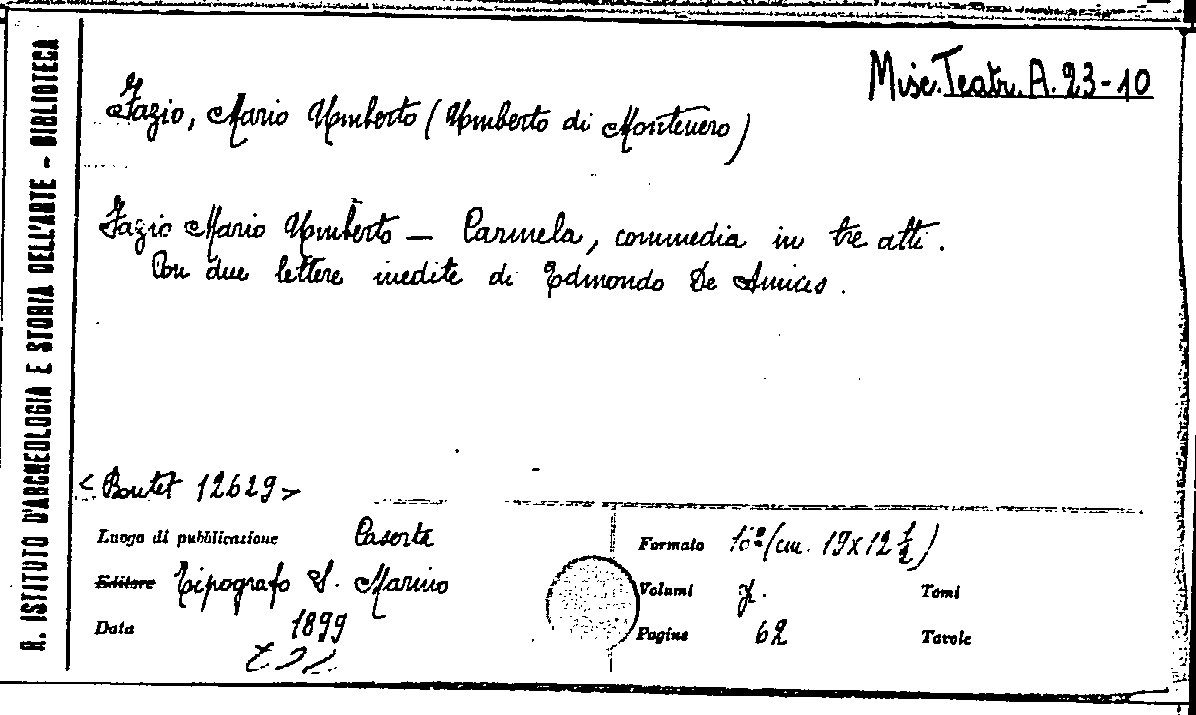 R. ISTITUTO D'ARCHEOLOGIA E STORIA DELL'ARTE - BIBLIOTECA
Misc. Teatr. A. 23-10
Fazio, Mario Umberto (Umberto di Montenero)
Fazio Mario Umberto — Carmela, commedia in tre atti.
Con due lettere inedite di Edmondo De Amicis.
< Boutet 12629 >
Luogo di pubblicazione Caserta
Editore Tipografo S. Marino
Data 1899
Formato 16º (cm. 19x12 ½)
Volumi Tomi
Pagine 62 Tavole